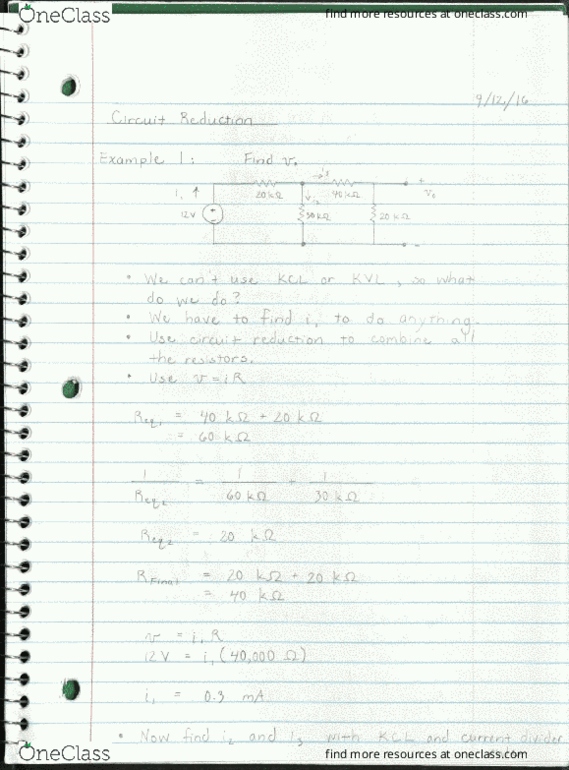 OneClass
find more resources at oneclass.com
9/12/16
Circuit Reduction
Example 1: Find v₀
i₃
i₁ ↑ 20kΩ i₂ 40kΩ + v₀
12V + - 30kΩ 20kΩ
-
• We can't use KCL or KVL, so what
do we do?
• We have to find i₁ to do anything.
• Use circuit reduction to combine all
the resistors.
• Use v=iR
Req₁ = 40 kΩ + 20 kΩ
= 60 kΩ
1/Req₂ = 1/60 kΩ + 1/30 kΩ
Req₂ = 20 kΩ
R Final = 20 kΩ + 20 kΩ
= 40 kΩ
v = i₁R
12V = i₁(40,000 Ω)
i₁ = 0.3 mA
• Now find i₂ and i₃ with KCL and current divider
OneClass
find more resources at oneclass.com